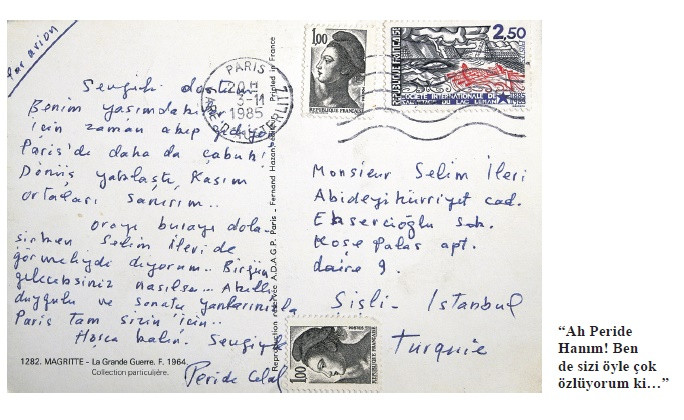 Par avion
Sevgili dostum
Benim yaşımdakiler
için zaman akıp gidiyor
Paris'de daha da çabuk!
Dönüş yaklaştı, Kasım
ortaları sanırım..
orayı burayı dola-
şırken Selim İleri de
görmeliydi diyorum.. Birgün
geleceksiniz nasılsa... Akıllı
duygulu ve sanatçı yanlarınızla
Paris tam sizin için..
Hoşça kalın. Sevgiyle
Peride Celal
1282. MAGRITTE - La Grande Guerre. F. 1964.
Collection particulière.
Reproduction réservée A.D.A.G.P. Paris - Fernand Hazan Printed in France
PARIS
20 H
3-11
1985
1,00
REPUBLIQUE FRANÇAISE
2,50
REPUBLIQUE FRANÇAISE
SOCIETE INTERNATIONALE DE
SAUVETAGE DU LAC LEMAN
1885
1985
Monsieur Selim İleri
Abideyi hürriyet cad.
Ekşercioğlu sok.
Köse Palas apt.
daire 9.
Şişli - İstanbul
Turquie
POSTES
1,00
“Ah Peride
Hanım! Ben
de sizi öyle çok
özlüyorum ki…”